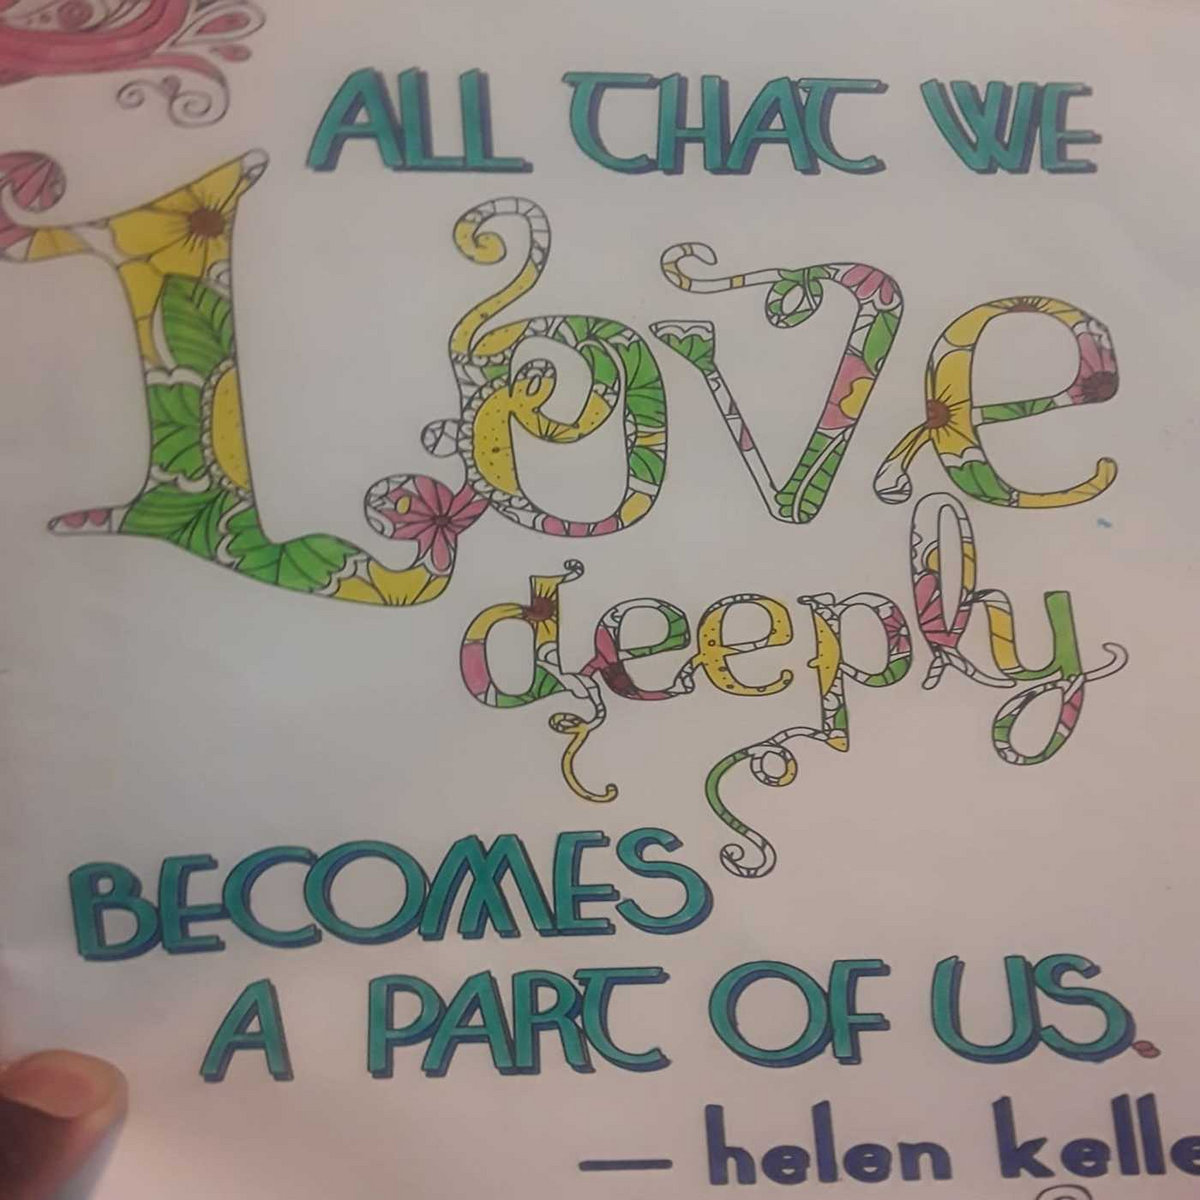 ALL THAT WE
Love
deeply
BECOMES
A PART OF US.
— helen kelle